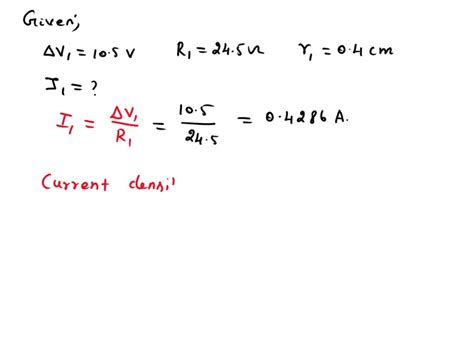 Given;
ΔV₁ = 10.5 V   R₁ = 24.5 Ω   r₁ = 0.4 cm
I₁ = ?
I₁ = ΔV₁/R₁ = 10.5/24.5 = 0.4286 A.
Current densi